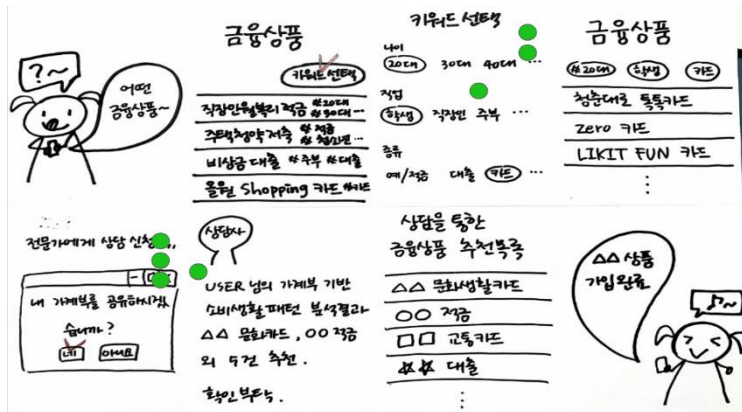 ?~
어떤
금융상품~
금융상품
키워드 선택
직장인월복리적금 #20대 #30대 ...
주택청약저축 #적금 #청소년...
비상금 대출 #주부 #대출
올원 Shopping 카드 #카드
키워드 선택
나이
20대 30대 40대 ...
직업
학생 직장인 주부 ...
종류
예/적금 대출 카드 ...
금융상품
#20대 학생 카드
청춘대로 톡톡카드
zero 카드
LIKIT FUN 카드
⋮
전문가에게 상담 신청
내 가계부를 공유하시겠
습니까?
네 아니오
상담사
USER 님의 가계부 기반
소비생활패턴 분석결과
△△ 문화카드, ○○ 적금
외 5건 추천.
확인부탁.
상담을 통한
금융상품 추천목록
△△ 문화생활카드
○○ 적금
□□ 교통카드
☆☆ 대출
⋮
△△ 상품
가입완료
♪~